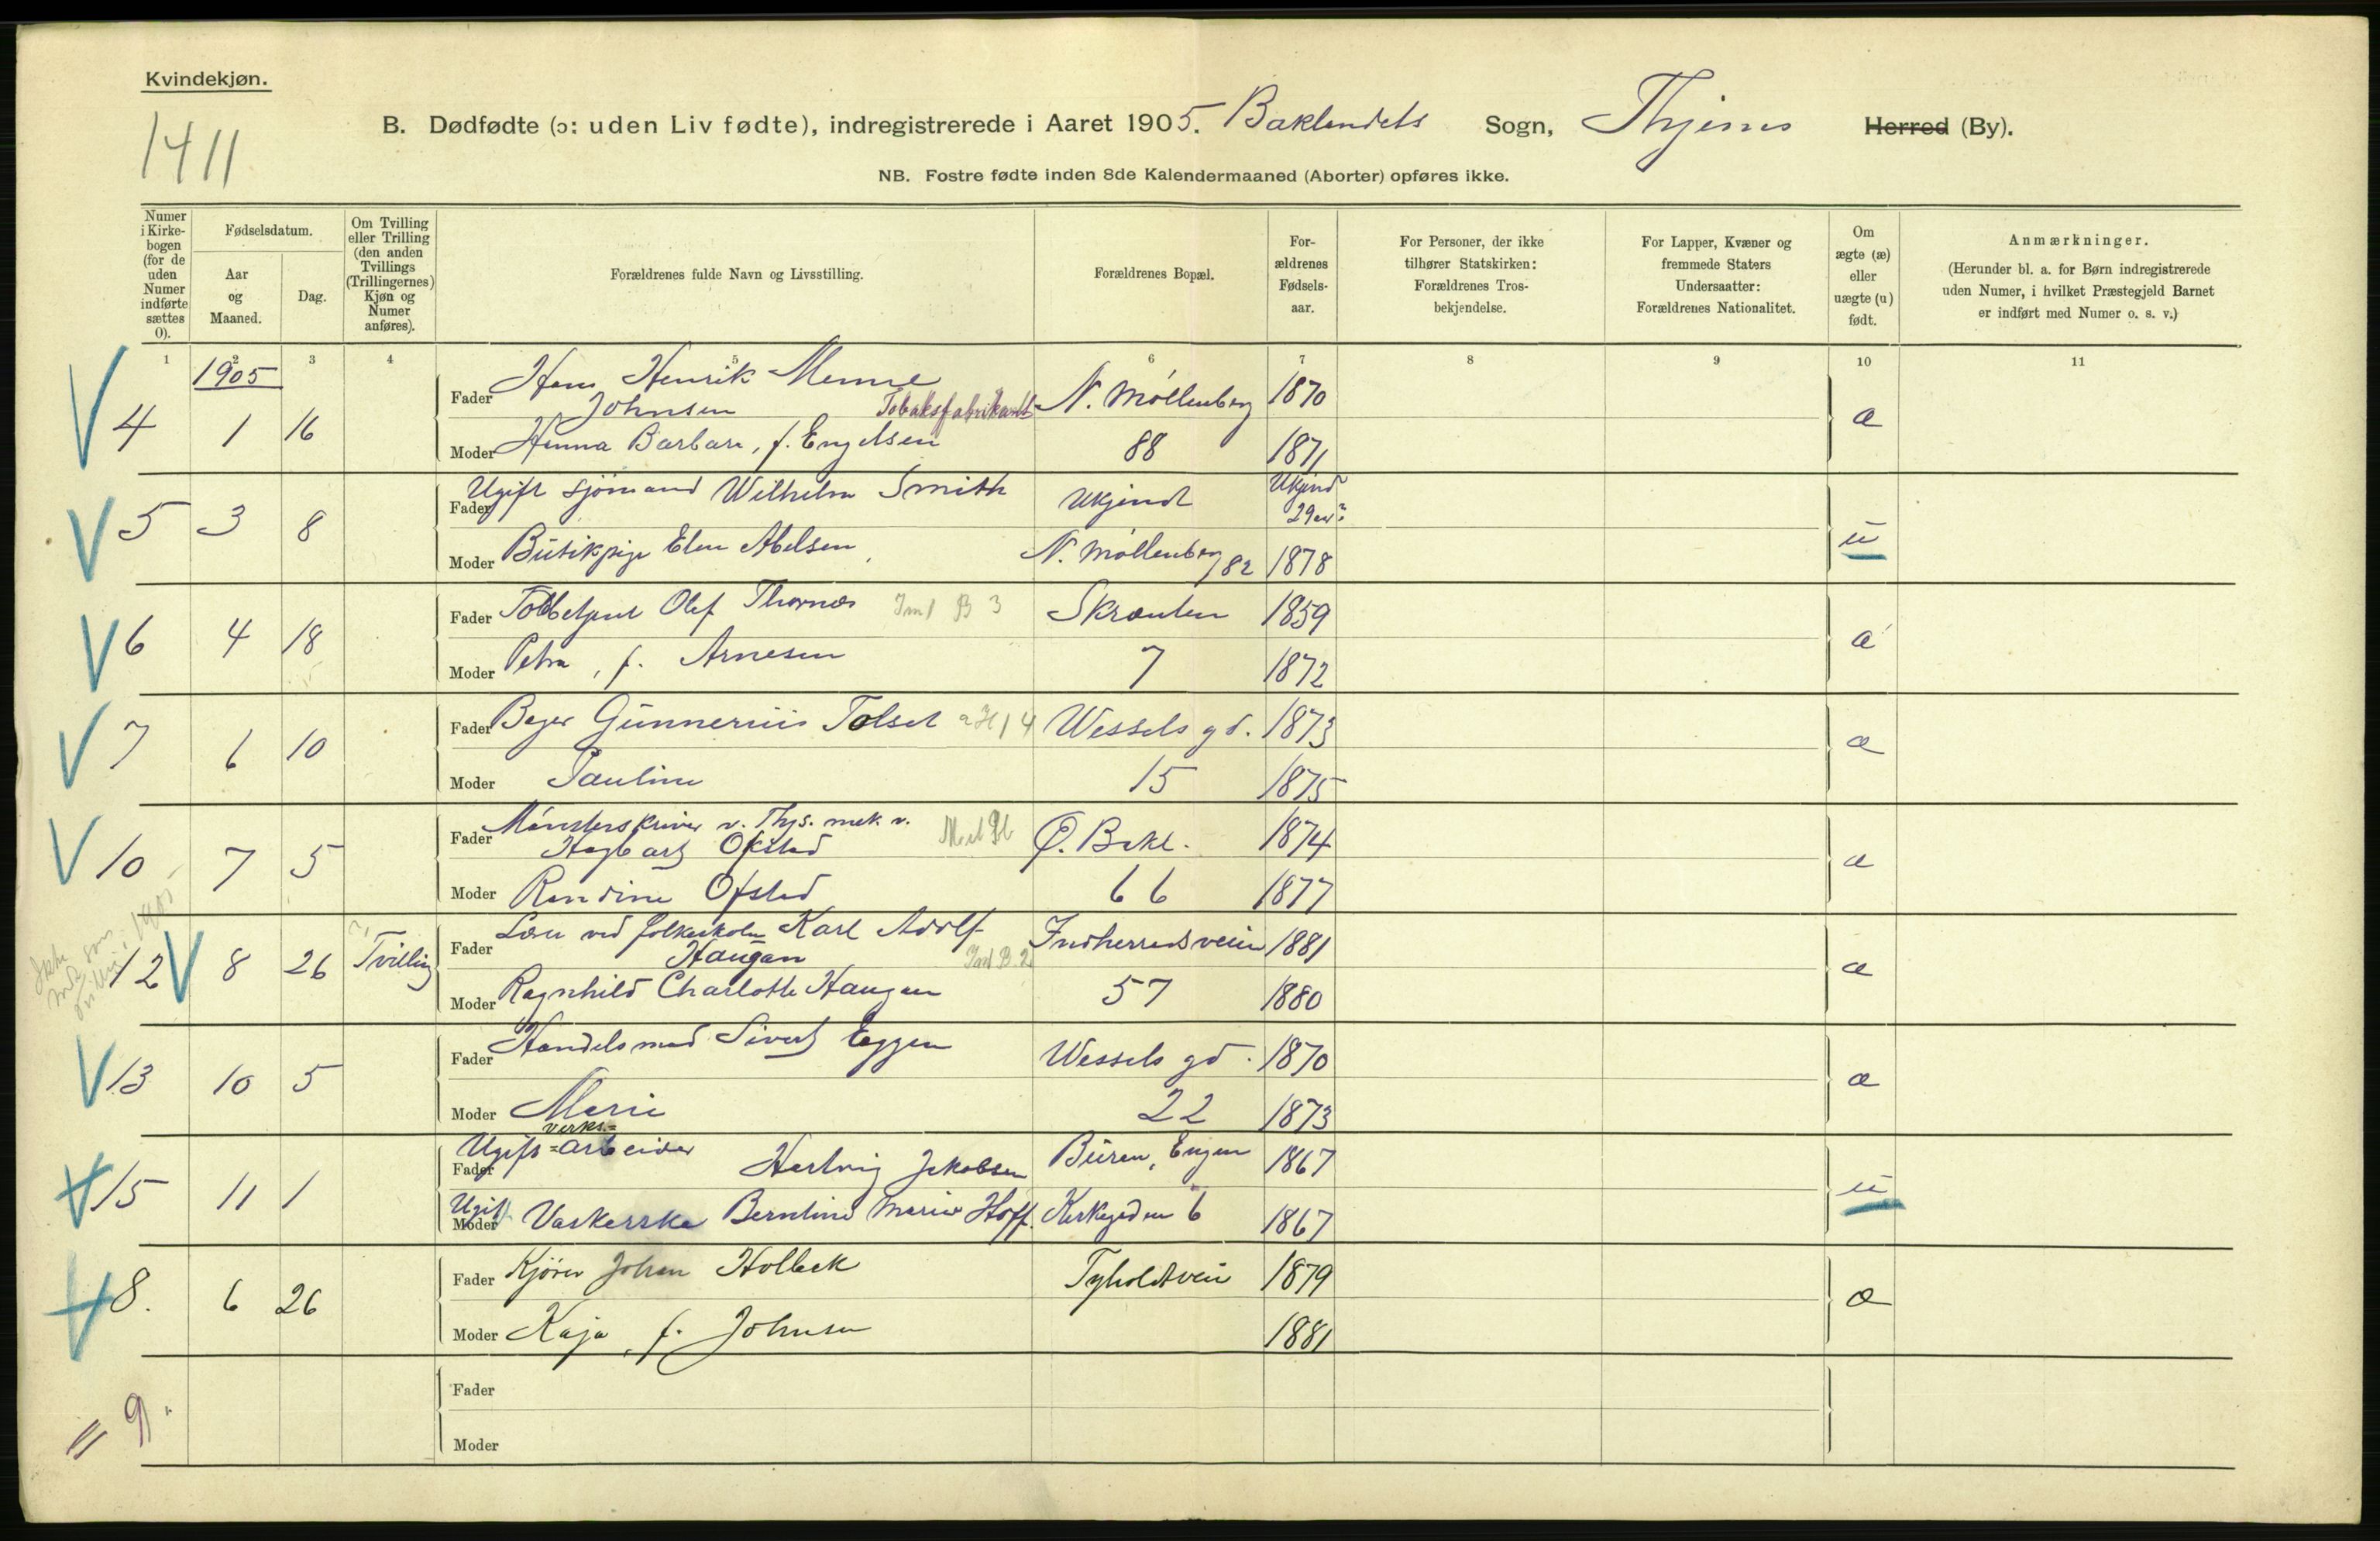 Kvindekjøn.
1411
B. Dødfødte (ɔ: uden Liv fødte), indregistrerede i Aaret 1905. Baklandets Sogn, Thjems Herred (By).
NB. Fostre fødte inden 8de Kalendermaaned (Aborter) opføres ikke.
Numer i Kirkebogen (for de uden Numer indførte sættes 0).
Fødselsdatum.
Aar og Maaned.
Dag.
Om Tvilling eller Trilling (den anden Tvillings (Trillingernes) Kjøn og Numer anføres).
Forældrenes fulde Navn og Livsstilling.
Forældrenes Bopæl.
For-ældrenes Fødsels-aar.
For Personer, der ikke tilhører Statskirken: Forældrenes Tros-bekjendelse.
For Lapper, Kvæner og fremmede Staters Undersaatter: Forældrenes Nationalitet.
Om ægte (æ) eller uægte (u) født.
Anmærkninger.
(Herunder bl. a. for Børn indregistrerede uden Numer, i hvilket Præstegjeld Barnet er indført med Numer o. s. v.)
1 2 3 4 5 6 7 8 9 10 11
1905
4 1 16
Fader Hans Henrik
Johnsen Tobaksfabrikant N. Møllenberg 1870 æ
Moder Hanna Barbara, f. Engelsen 88 1871
5 3 8
Fader Ugift sjømand Wilhelm Smith Ukjendt Ukjend 29 aar? u
Moder Butikpige Elen Abelsen N. Møllenberg 82 1878
6 4 18
Fader Toldbetjent Olaf Thornæs Ind B 3 Skrænten 1859 æ
Moder Petra, f. Arnesen 7 1872
7 6 10
Fader Bager Gunnerius Tolset Wessels gd. 1873 æ
Moder Pauline 15 1875
10 7 5
Fader Mønsterskriver v. Thjs. mek. v.
Hagbart Ofstad Ø. Bakl. 1874 æ
Moder Randine Ofstad 66 1877
12 8 26 Tvilling
Fader Lærer ved folkeskolen Karl Adolf
Haugan Ind B. 2 Indherredsveien 1881 æ
Moder Ragnhild Charlotte Haugan 57 1880
13 10 5
Fader Handelsmand Sivert Eggen Wessels gd. 1870 æ
Moder Marie 22 1873
15 11 1
verks-
Fader Ugift arbeider Hartvig Jakobsen Buran, Engen 1867 u
Moder Ugift Vaskerske Berntine Marie Hoff. Kirkegaden 6 1867
8. 6 26
Fader Kjører Johan Holbek Tyholdtveien 1879 æ
Moder Kaja, f. Johnsen 1881
9.
Fader
Moder